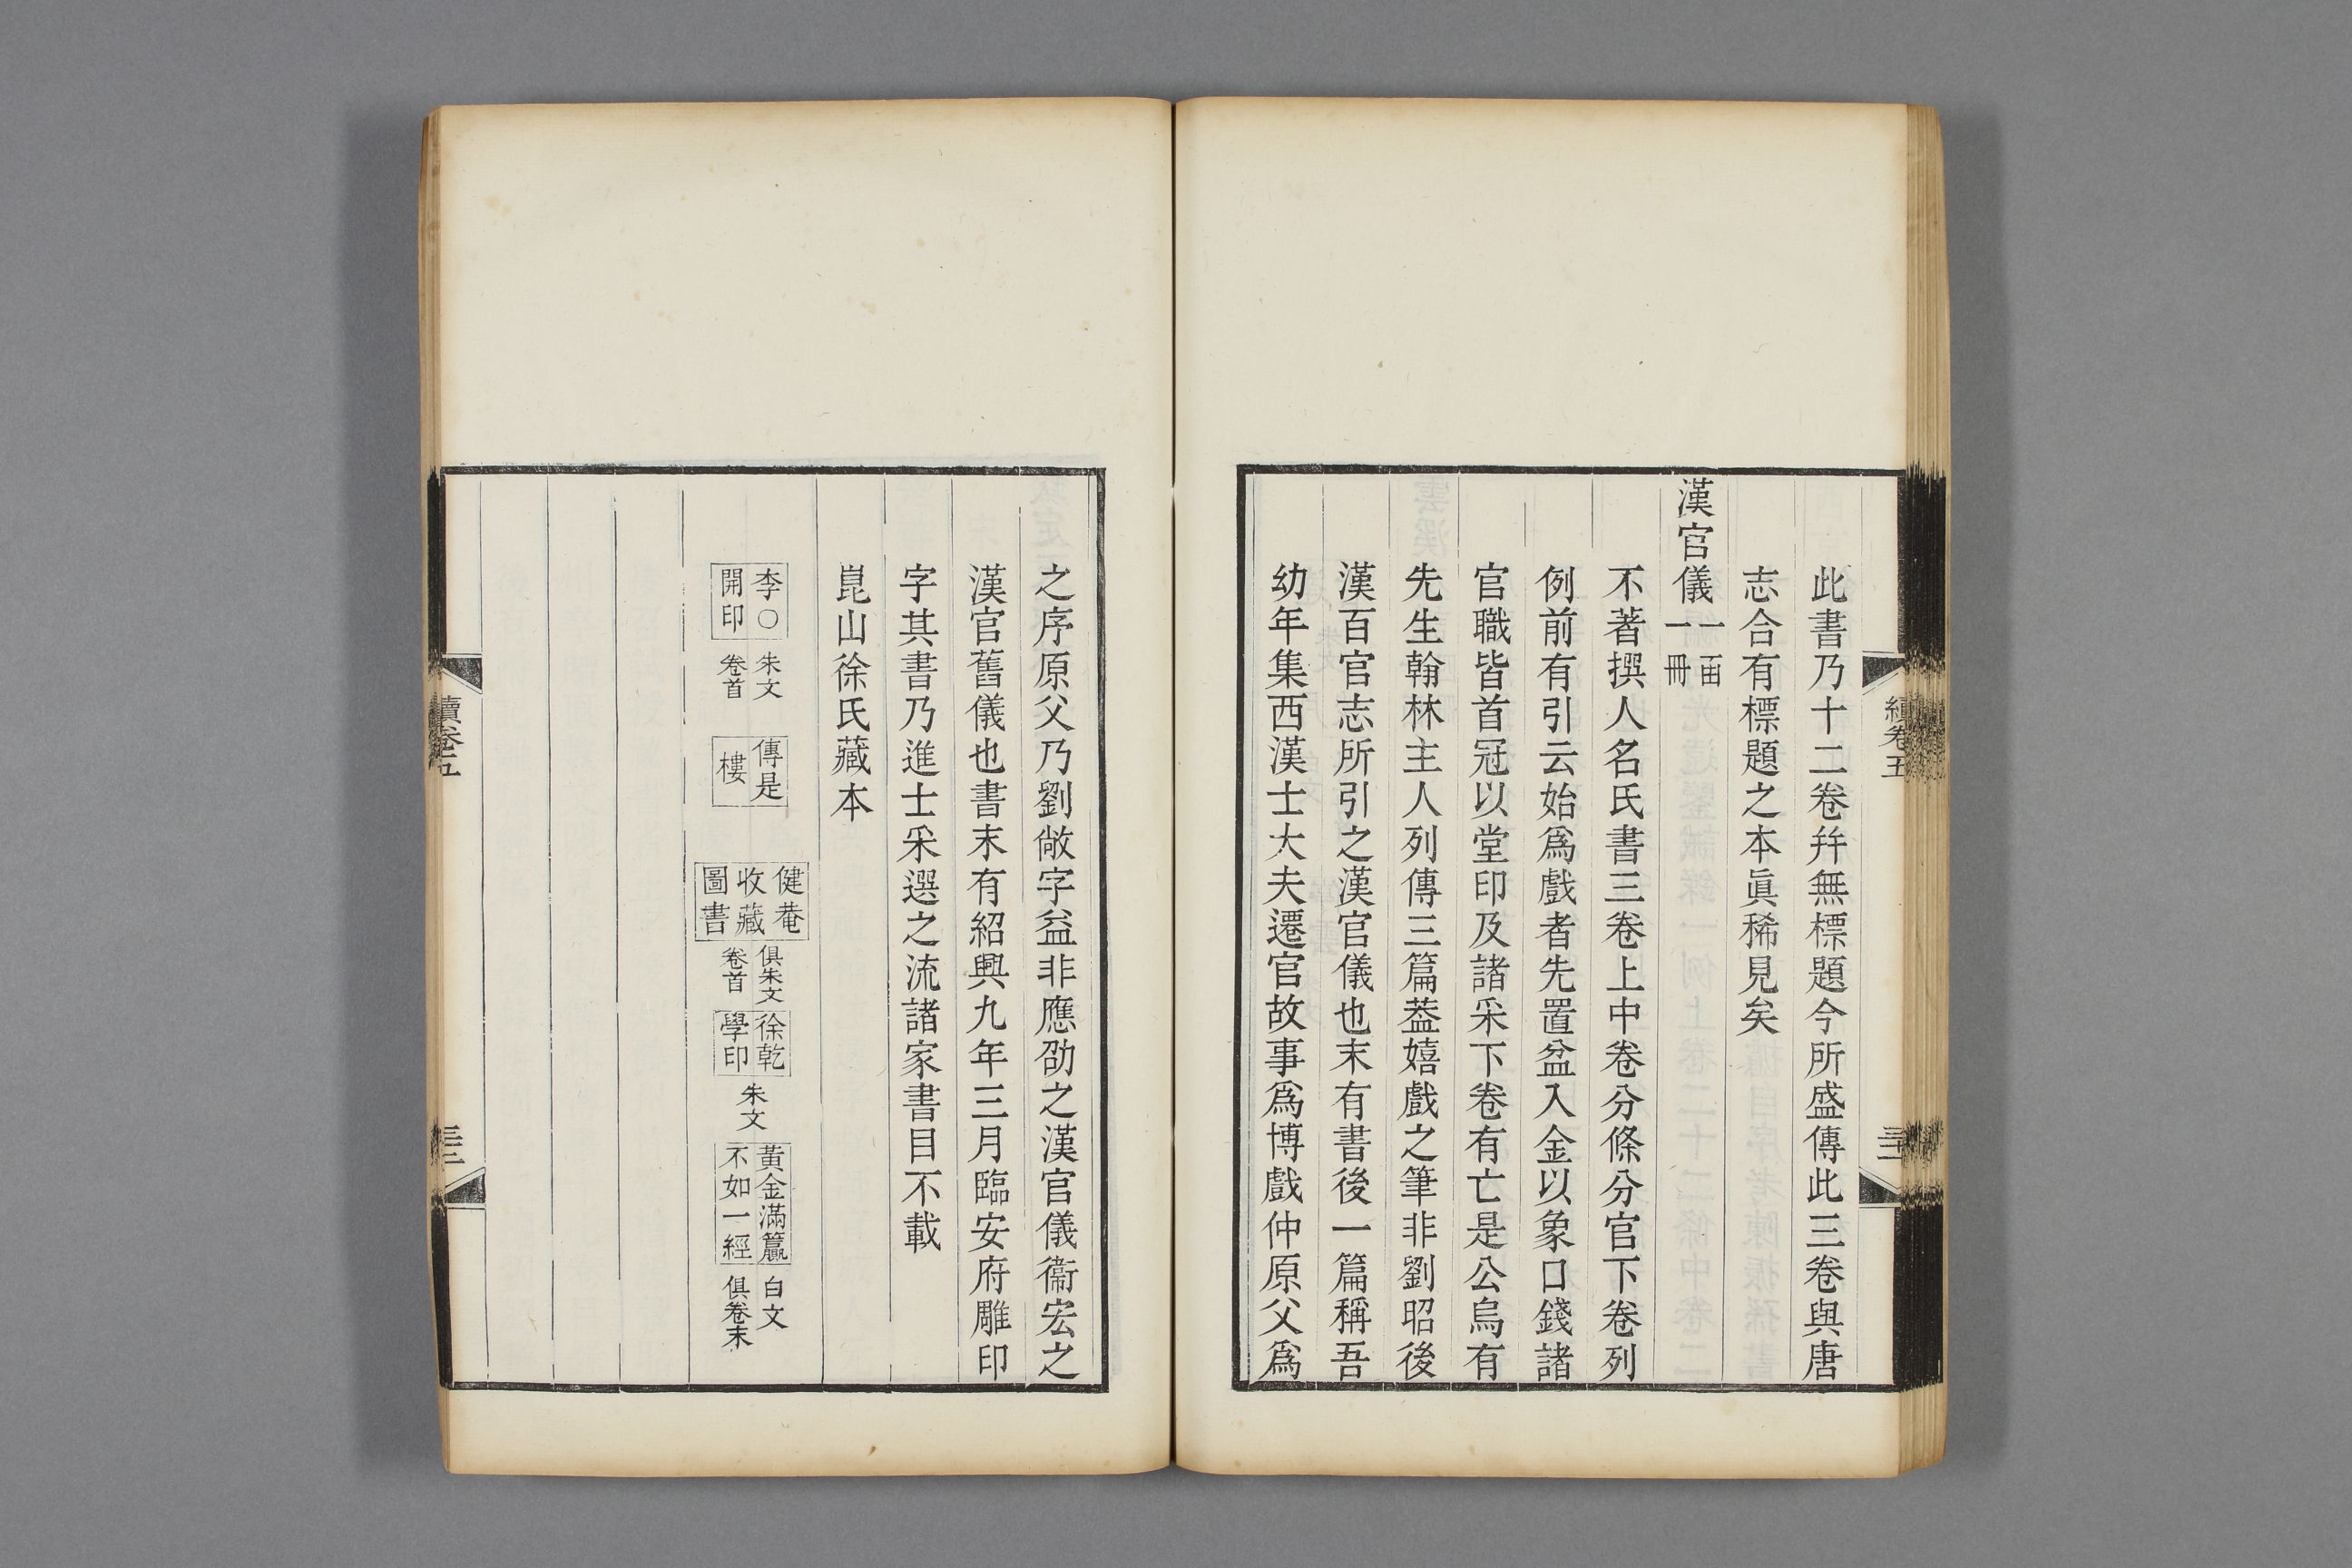 此書乃十二卷幷無標題今所盛傳此三卷與唐
志合有標題之本眞稀見矣
漢官儀一函一冊
不著撰人名氏書三卷上中卷分條分官下卷列
例前有引云始爲戲者先置盆入金以象口錢諸
官職皆首冠以堂印及諸采下卷有亡是公烏有
先生翰林主人列傳三篇葢嬉戲之筆非劉昭後
漢百官志所引之漢官儀也末有書後一篇稱吾
幼年集西漢士大夫遷官故事爲博戲仲原父爲
之序原父乃劉敞字益非應劭之漢官儀衞宏之
漢官舊儀也書末有紹興九年三月臨安府雕印
字其書乃進士采選之流諸家書目不載
崑山徐氏藏本
李○開印
朱文卷首
傳是樓
健菴收藏圖書
俱朱文卷首
徐乾學印
朱文
黃金滿籯不如一經
白文俱卷末
續卷五
續卷五